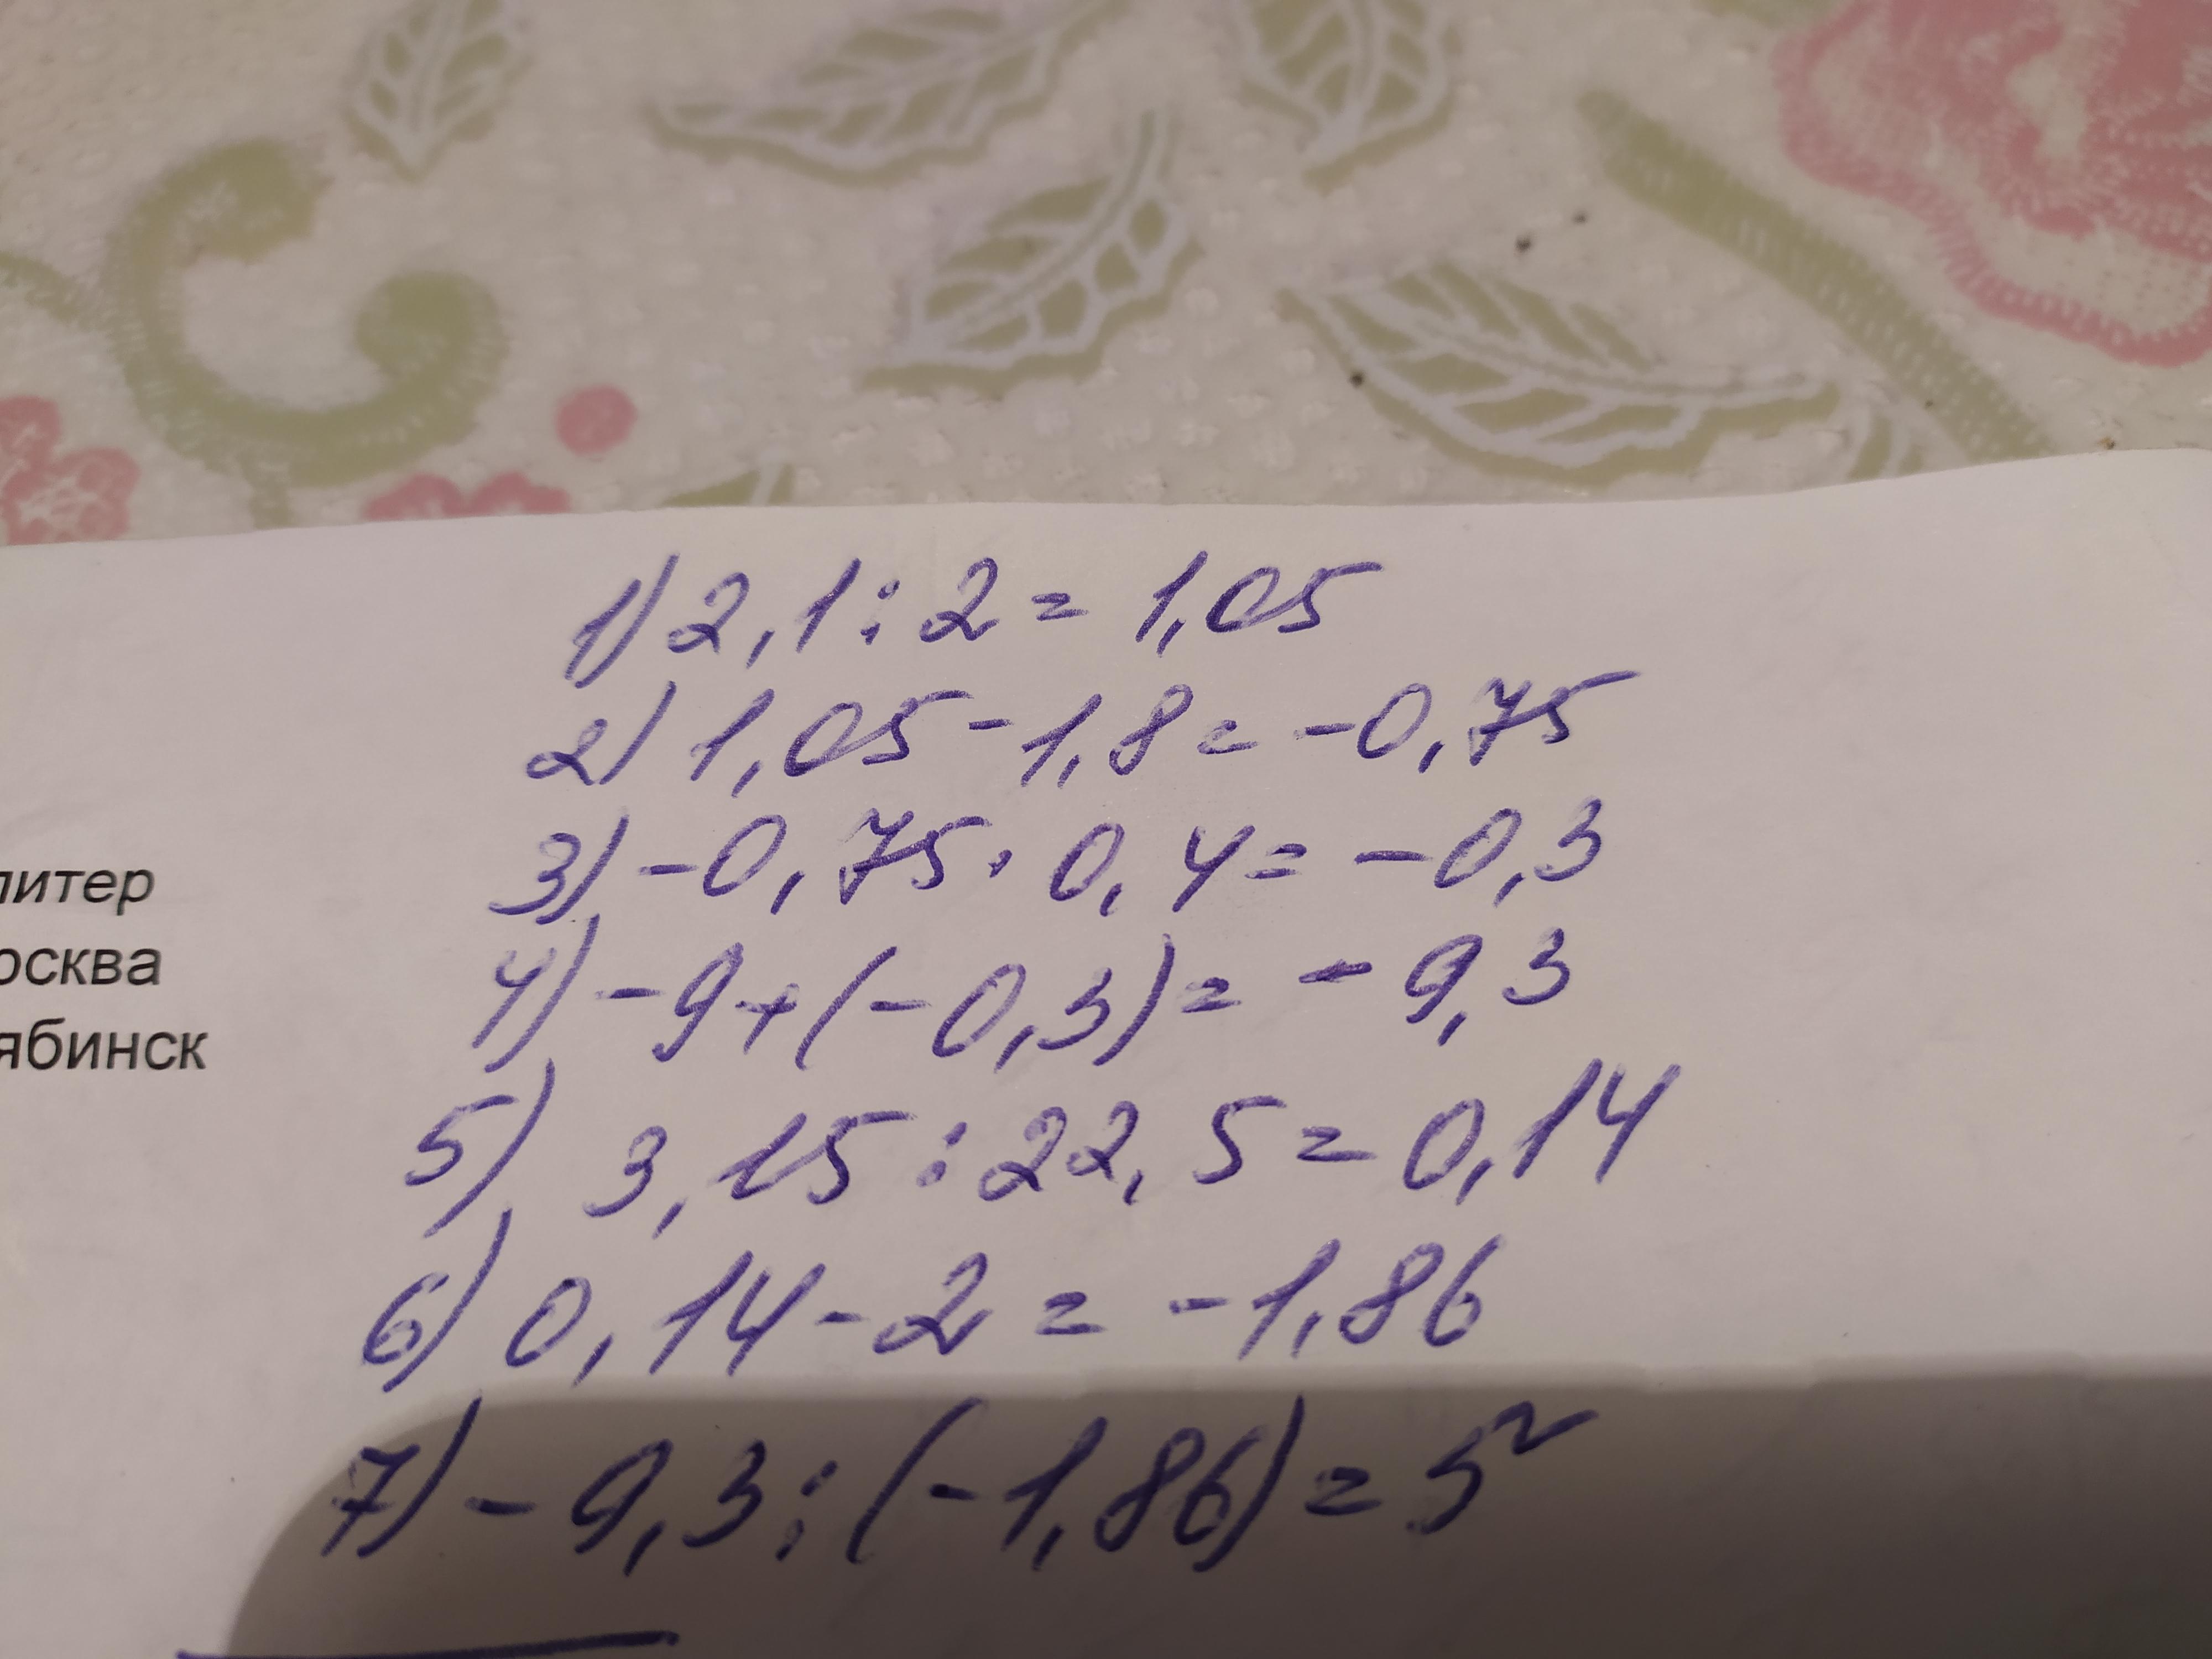 1) 2,1 : 2 = 1,05
2) 1,05 - 1,8 = -0,75
3) -0,75 · 0,4 = -0,3
4) -9 + (-0,3) = -9,3
5) 3,15 : 22,5 = 0,14
6) 0,14 - 2 = -1,86
7) -9,3 : (-1,86) = 5
питер
осква
ябинск